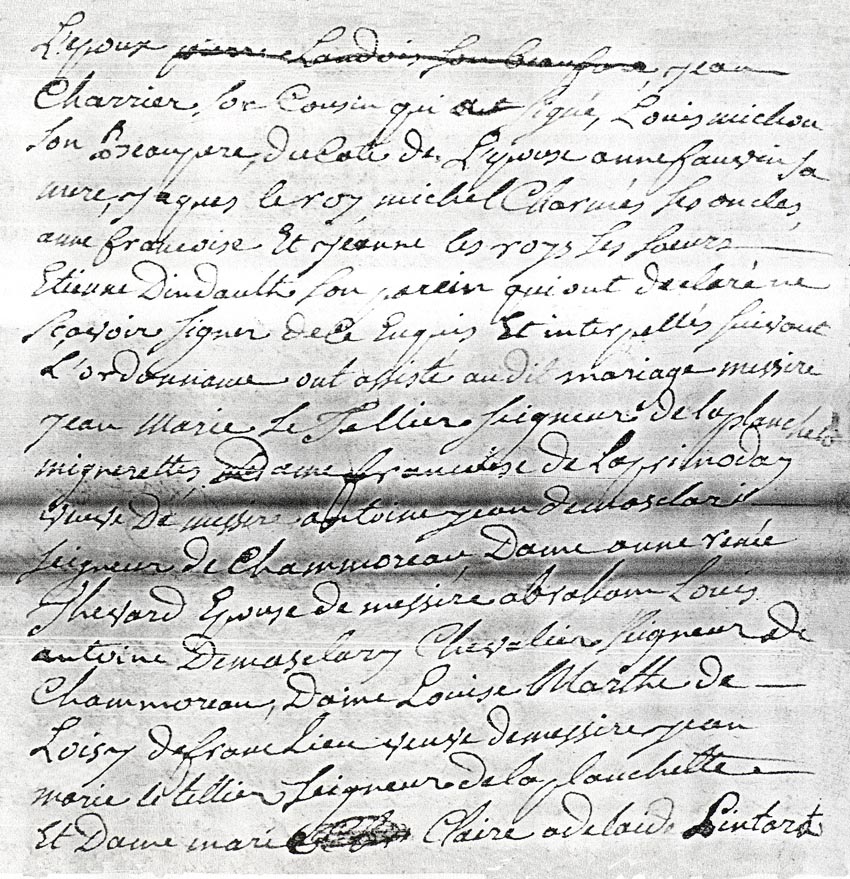 L'epoux pierre Landois son beaufrere, jean
Charrier, son Cousin qui ont signé, Louis michou
son beaupere, du Coté de L'epouse anne fauvin sa
mere, jaques le roy, michel Charmés ses oncles,
anne francoise Et jeanne les roys ses soeurs
Etienne Dindault son parein qui ont declaré ne
Sçavoir signer de Ce Enquis Et interpellés suivant
L'ordonnance ont assisté audit mariage messire
jean Marie Le Tellier seigneur de la planchette
mignerettes Dame francoise de La
veuve De messire antoine jean demasclary
seigneur de Chammoreau, Dame anne renée
Thevard Epouse de messire abraham Louis
antoine Demasclary Chevalier seigneur de
Chammoreau, Dame Louise Marthe de
Loisy de francLieu veuve demessire jean
marie le tellier seigneur de la planchette
Et Dame marie Claire adelaide Lintort